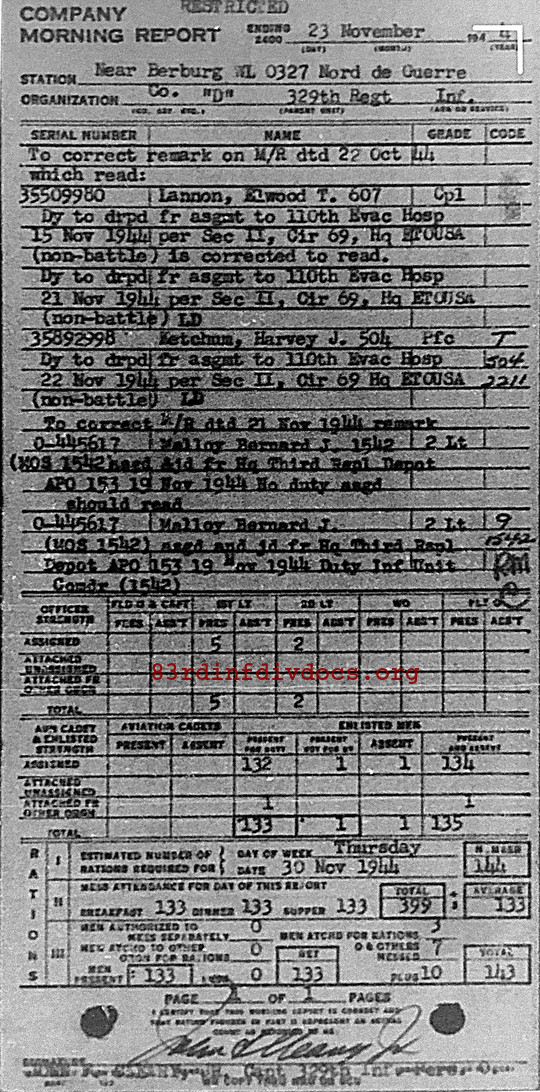 RESTRICTED
COMPANY
MORNING REPORT ENDING 2400 23 November 194 4
(DAY) (MONTH) (YEAR)
STATION Near Berburg WL 0327 Nord de Guerre
ORGANIZATION Co. "D" 329th Regt Inf.
(PARENT UNIT) (ARM OR SERVICE)
SERIAL NUMBER NAME GRADE CODE
To correct remark on M/R dtd 22 Oct 44
which read:
35509980 Lannon, Elwood T. 607 Cpl
Dy to drpd fr asgmt to 110th Evac Hosp
15 Nov 1944 per Sec II, Cir 69, Hq ETOUSA
(non-battle) is corrected to read.
Dy to drpd fr asgmt to 110th Evac Hosp
21 Nov 1944 per Sec II, Cir 69, Hq ETOUSA
(non-battle) LD
35892998 Ketchum, Harvey J. 504 Pfc T
Dy to drpd fr asgmt to 110th Evac Hosp 504
22 Nov 1944 per Sec II, Cir 69 Hq ETOUSA 2211
(non-battle) LD
To correct M/R dtd 21 Nov 1944 remark
O-445617 Malloy Bernard J. 1542 2 Lt
(MOS 1542) asgd &jd fr Hq Third Repl Depot
APO 153 19 Nov 1944 No duty asgd
should read
O-445617 Malloy Bernard J. 2 Lt 9
(MOS 1542) asgd and jd fr Hq Third Repl 1542
Depot APO 153 19 Nov 1944 Duty Inf Unit
Comdr (1542)
OFFICER STRENGTH FLD O & CAPT 1ST LT 2D LT WO FLT O
PRES ABS'T PRES ABS'T PRES ABS'T PRES ABS'T PRES ABS'T
ASSIGNED 5 2
ATTACHED UNASSIGNED
ATTACHED FR OTHER ORGN
83rdinfdivdocs.org
TOTAL 5 2
AVN CADET & ENLISTED STRENGTH AVIATION CADETS ENLISTED MEN
PRESENT ABSENT PRESENT FOR DUTY PRESENT NOT FOR DY ABSENT PRESENT AND ABSENT
ASSIGNED 132 1 1 134
ATTACHED UNASSIGNED
ATTACHED FR OTHER ORGN 1 1
TOTAL 133 1 1 135
RATIONS
I ESTIMATED NUMBER OF RATIONS REQUIRED FOR DAY OF WEEK Thursday NUMBER
DATE 30 Nov 1944 144
II MESS ATTENDANCE FOR DAY OF THIS REPORT TOTAL ÷ 3 AVERAGE
BREAKFAST 133 DINNER 133 SUPPER 133 399 133
III MEN AUTHORIZED TO MESS SEPARATELY 0 MEN ATCHD FOR RATIONS 3
MEN ATCHD TO OTHER ORGN FOR RATIONS 0 NET O & OTHERS MESSED 7 TOTAL
MEN PRESENT 133 LESS 0 133 PLUS 10 143
PAGE 1 OF 1 PAGES
I CERTIFY THAT THIS MORNING REPORT IS CORRECT AND